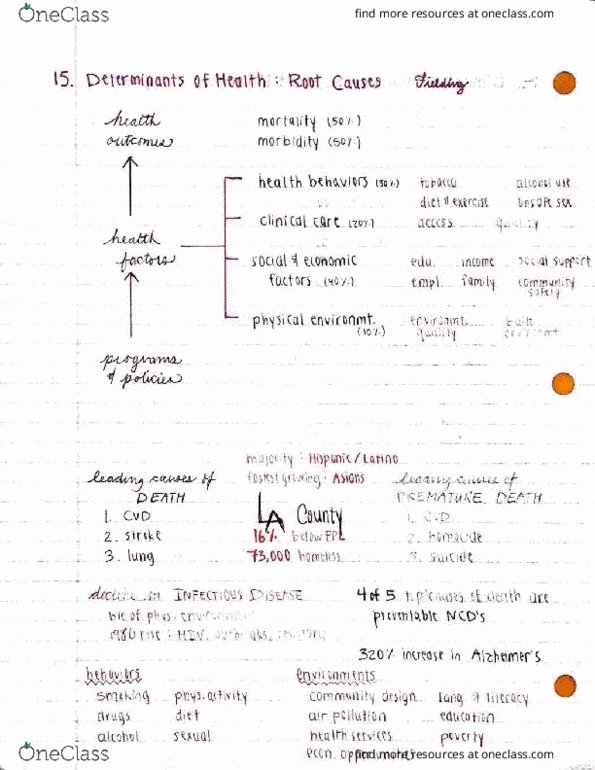 OneClass
find more resources at oneclass.com
15. Determinants of Health : Root Causes Fielding
health outcomes
mortality (50%)
morbidity (50%)
health behaviors (30%) tobacco alcohol use
diet & exercise unsafe sex
clinical care (20%) access quality
health factors
social & economic edu. income social support
factors (40%) empl. family community safety
physical environmt. (10%) environmt. quality built
programs & policies
majority : Hispanic / Latino
fastest growing : Asians
leading causes of DEATH
1. CVD
2. stroke
3. lung
LA County
16% below FPL
73,000 homeless
leading causes of PREMATURE DEATH
1. CVD
2. homicide
3. suicide
decline in INFECTIOUS DISEASE
b/c of phys. environment
1980 rise : HIV, outbreaks,
4 of 5 top causes of death are
preventable NCD's
320% increase in Alzheimer's
behaviors
smoking phys. activity
drugs diet
alcohol sexual
environments
community design lang. & literacy
air pollution education
health services poverty
econ. 
find more resources at oneclass.com
OneClass